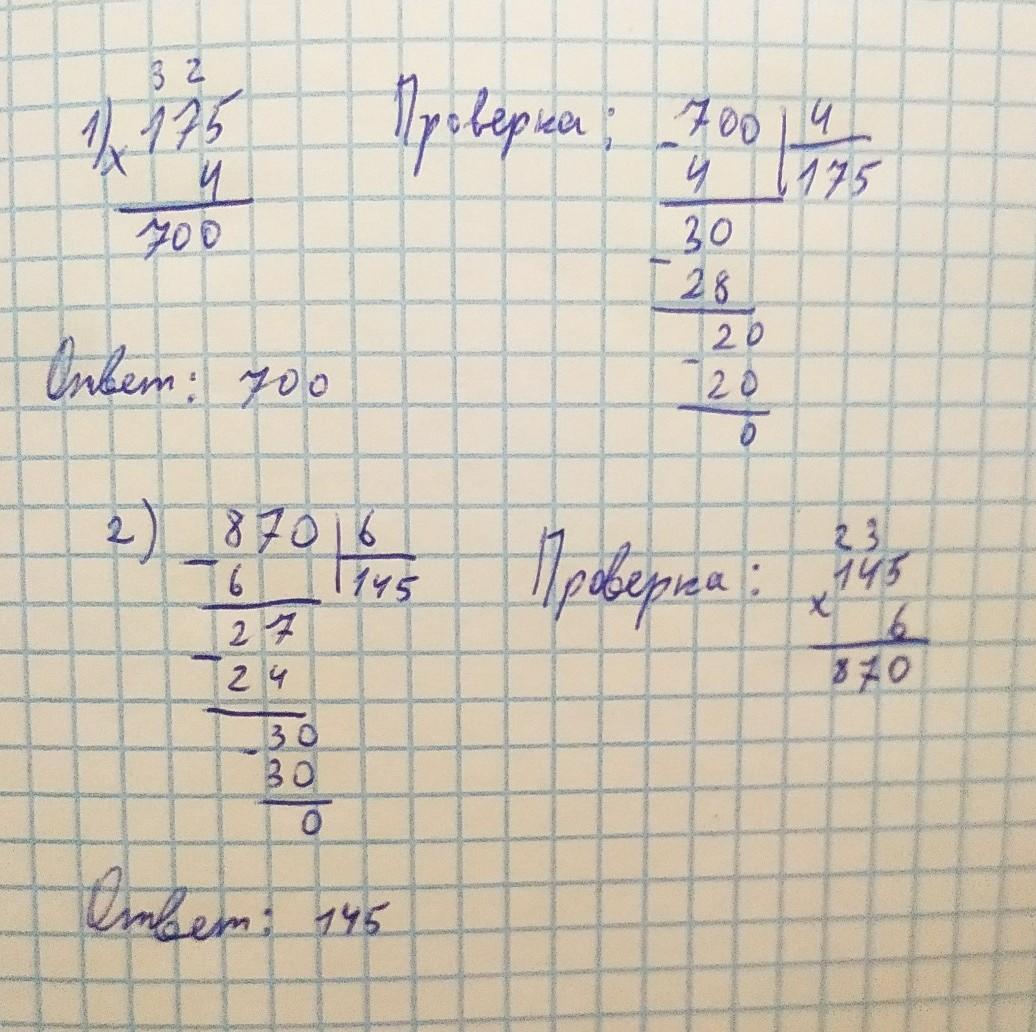 3 2
1) 175
x 4
700
Проверка:
- 700 | 4
4 | 175
30
- 28
20
- 20
0
Ответ: 700
2) - 870 | 6
6 | 145
27
- 24
- 30
30
0
Проверка:
2 3
145
x 6
870
Ответ: 145